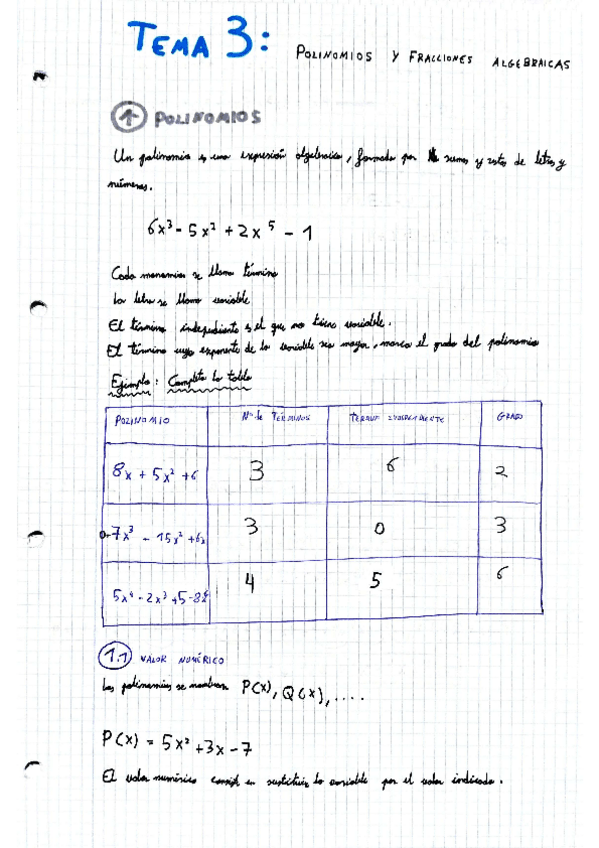 TEMA 3: POLINOMIOS Y FRACCIONES ALGEBRAICAS
1 POLINOMIOS
Un polinomio es una expresión algebraica, formada por sumas y restas de letras y
números.
6x³ - 5x² + 2x⁵ - 1
Cada monomio se llama término
La letra se llama variable
El término independiente es el que no tiene variable.
El término cuyo exponente de la variable sea mayor, marca el grado del polinomio
Ejemplo: Completa la tabla
POLINOMIO Nº de TÉRMINOS TÉRMINO INDEPENDIENTE GRADO
8x + 5x² + 6 3 6 2
0-7x³ - 15x² + 6x 3 0 3
5x⁴ - 2x³ + 5 - 8x⁶ 4 5 6
1.1 VALOR NUMÉRICO
Los polinomios se nombran P(x), Q(x), ....
P(x) = 5x² + 3x - 7
El valor numérico consist en sustituir la variable por el valor indicado.